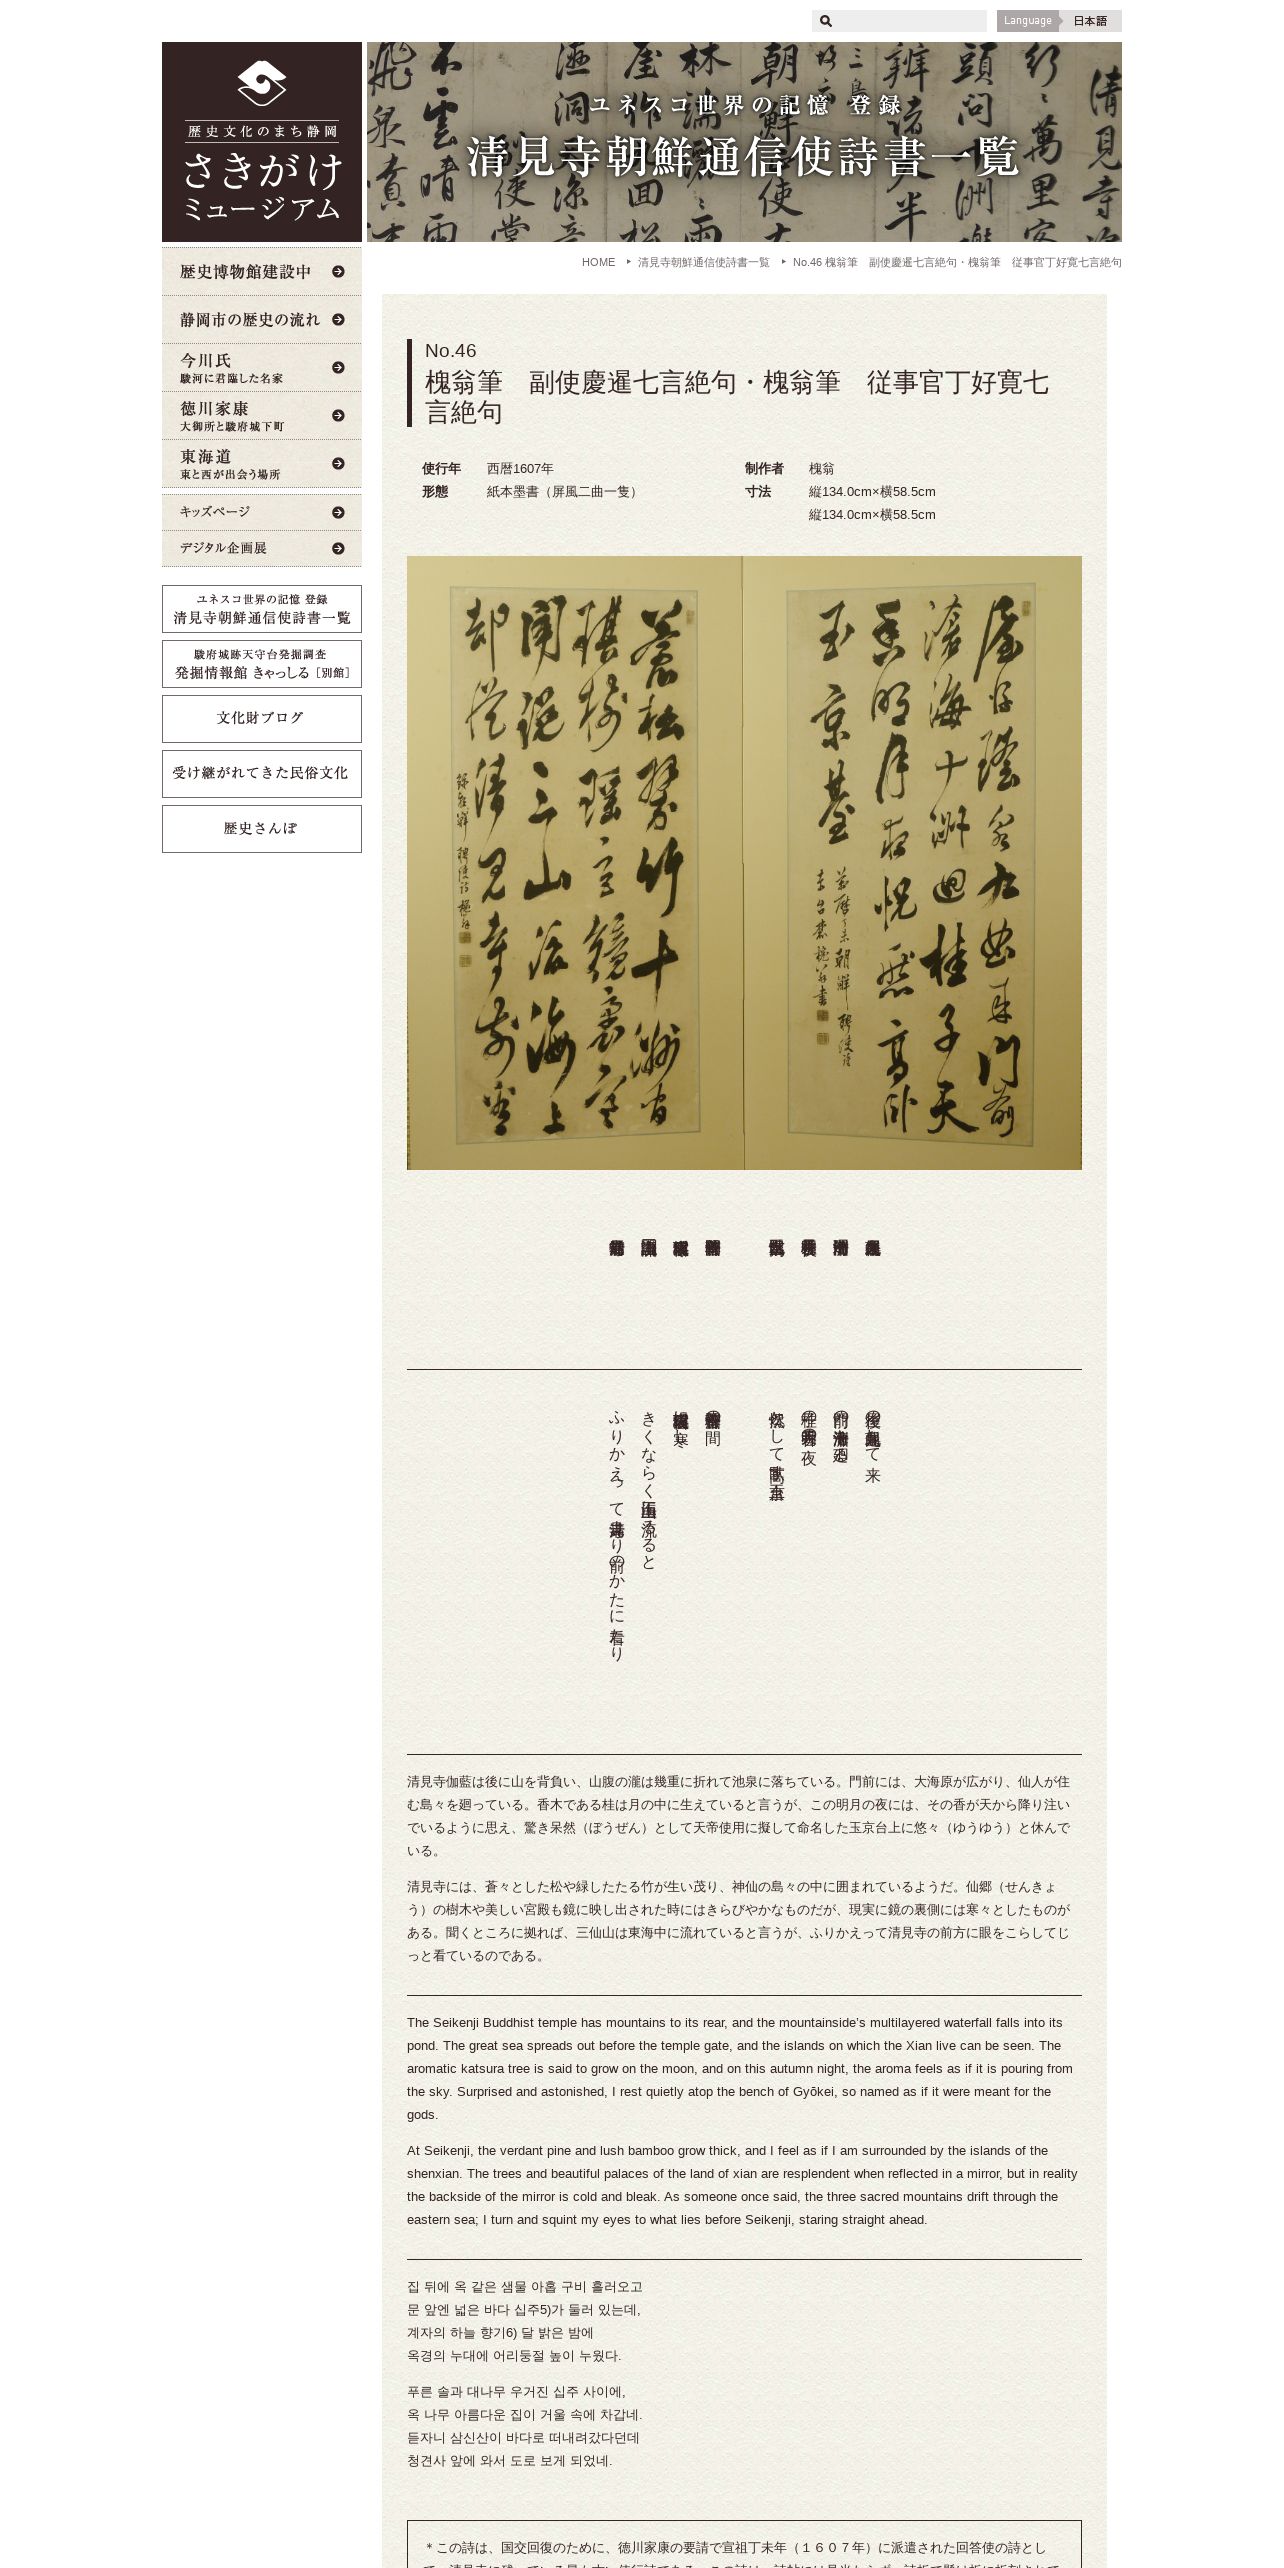 Language 日本語
歴史文化のまち静岡
さきがけ
ミュージアム
ユネスコ世界の記憶 登録
清見寺朝鮮通信使詩書一覧
HOME 清見寺朝鮮通信使詩書一覧 No.46 槐翁筆　副使慶暹七言絶句・槐翁筆　従事官丁好寛七言絶句
歴史博物館建設中
静岡市の歴史の流れ
今川氏
駿河に君臨した名家
徳川家康
大御所と駿府城下町
東海道
東と西が出会う場所
キッズページ
デジタル企画展
ユネスコ世界の記憶 登録
清見寺朝鮮通信使詩書一覧
駿府城跡天守台発掘調査
発掘情報館 きゃっしる［別館］
文化財ブログ
受け継がれてきた民俗文化
歴史さんぽ
No.46
槐翁筆　副使慶暹七言絶句・槐翁筆　従事官丁好寛七
言絶句
使行年 西暦1607年
形態 紙本墨書（屏風二曲一隻）
制作者 槐翁
寸法 縦134.0cm×横58.5cm
縦134.0cm×横58.5cm
清見寺伽藍は後に山を背負い、山腹の瀧は幾重に折れて池泉に落ちている。門前には、大海原が広がり、仙人が住
む島々を廻っている。香木である桂は月の中に生えていると言うが、この明月の夜には、その香が天から降り注い
でいるように思え、驚き呆然（ぼうぜん）として天帝使用に擬して命名した玉京台上に悠々（ゆうゆう）と休んで
いる。
清見寺には、蒼々とした松や緑したたる竹が生い茂り、神仙の島々の中に囲まれているようだ。仙郷（せんきょ
う）の樹木や美しい宮殿も鏡に映し出された時にはきらびやかなものだが、現実に鏡の裏側には寒々としたものが
ある。聞くところに拠れば、三仙山は東海中に流れていると言うが、ふりかえって清見寺の前方に眼をこらしてじ
っと看ているのである。
The Seikenji Buddhist temple has mountains to its rear, and the mountainside’s multilayered waterfall falls into its
pond. The great sea spreads out before the temple gate, and the islands on which the Xian live can be seen. The
aromatic katsura tree is said to grow on the moon, and on this autumn night, the aroma feels as if it is pouring from
the sky. Surprised and astonished, I rest quietly atop the bench of Gyōkei, so named as if it were meant for the
gods.
At Seikenji, the verdant pine and lush bamboo grow thick, and I feel as if I am surrounded by the islands of the
shenxian. The trees and beautiful palaces of the land of xian are resplendent when reflected in a mirror, but in reality
the backside of the mirror is cold and bleak. As someone once said, the three sacred mountains drift through the
eastern sea; I turn and squint my eyes to what lies before Seikenji, staring straight ahead.
집 뒤에 옥 같은 샘물 아홉 구비 흘러오고
문 앞엔 넓은 바다 십주5)가 둘러 있는데,
계자의 하늘 향기6) 달 밝은 밤에
옥경의 누대에 어리둥절 높이 누웠다.
푸른 솔과 대나무 우거진 십주 사이에,
옥 나무 아름다운 집이 거울 속에 차갑네.
듣자니 삼신산이 바다로 떠내려갔다던데
청견사 앞에 와서 도로 보게 되었네.
＊この詩は、国交回復のために、徳川家康の要請で宣祖丁未年（１６０７年）に派遣された回答使の詩とし